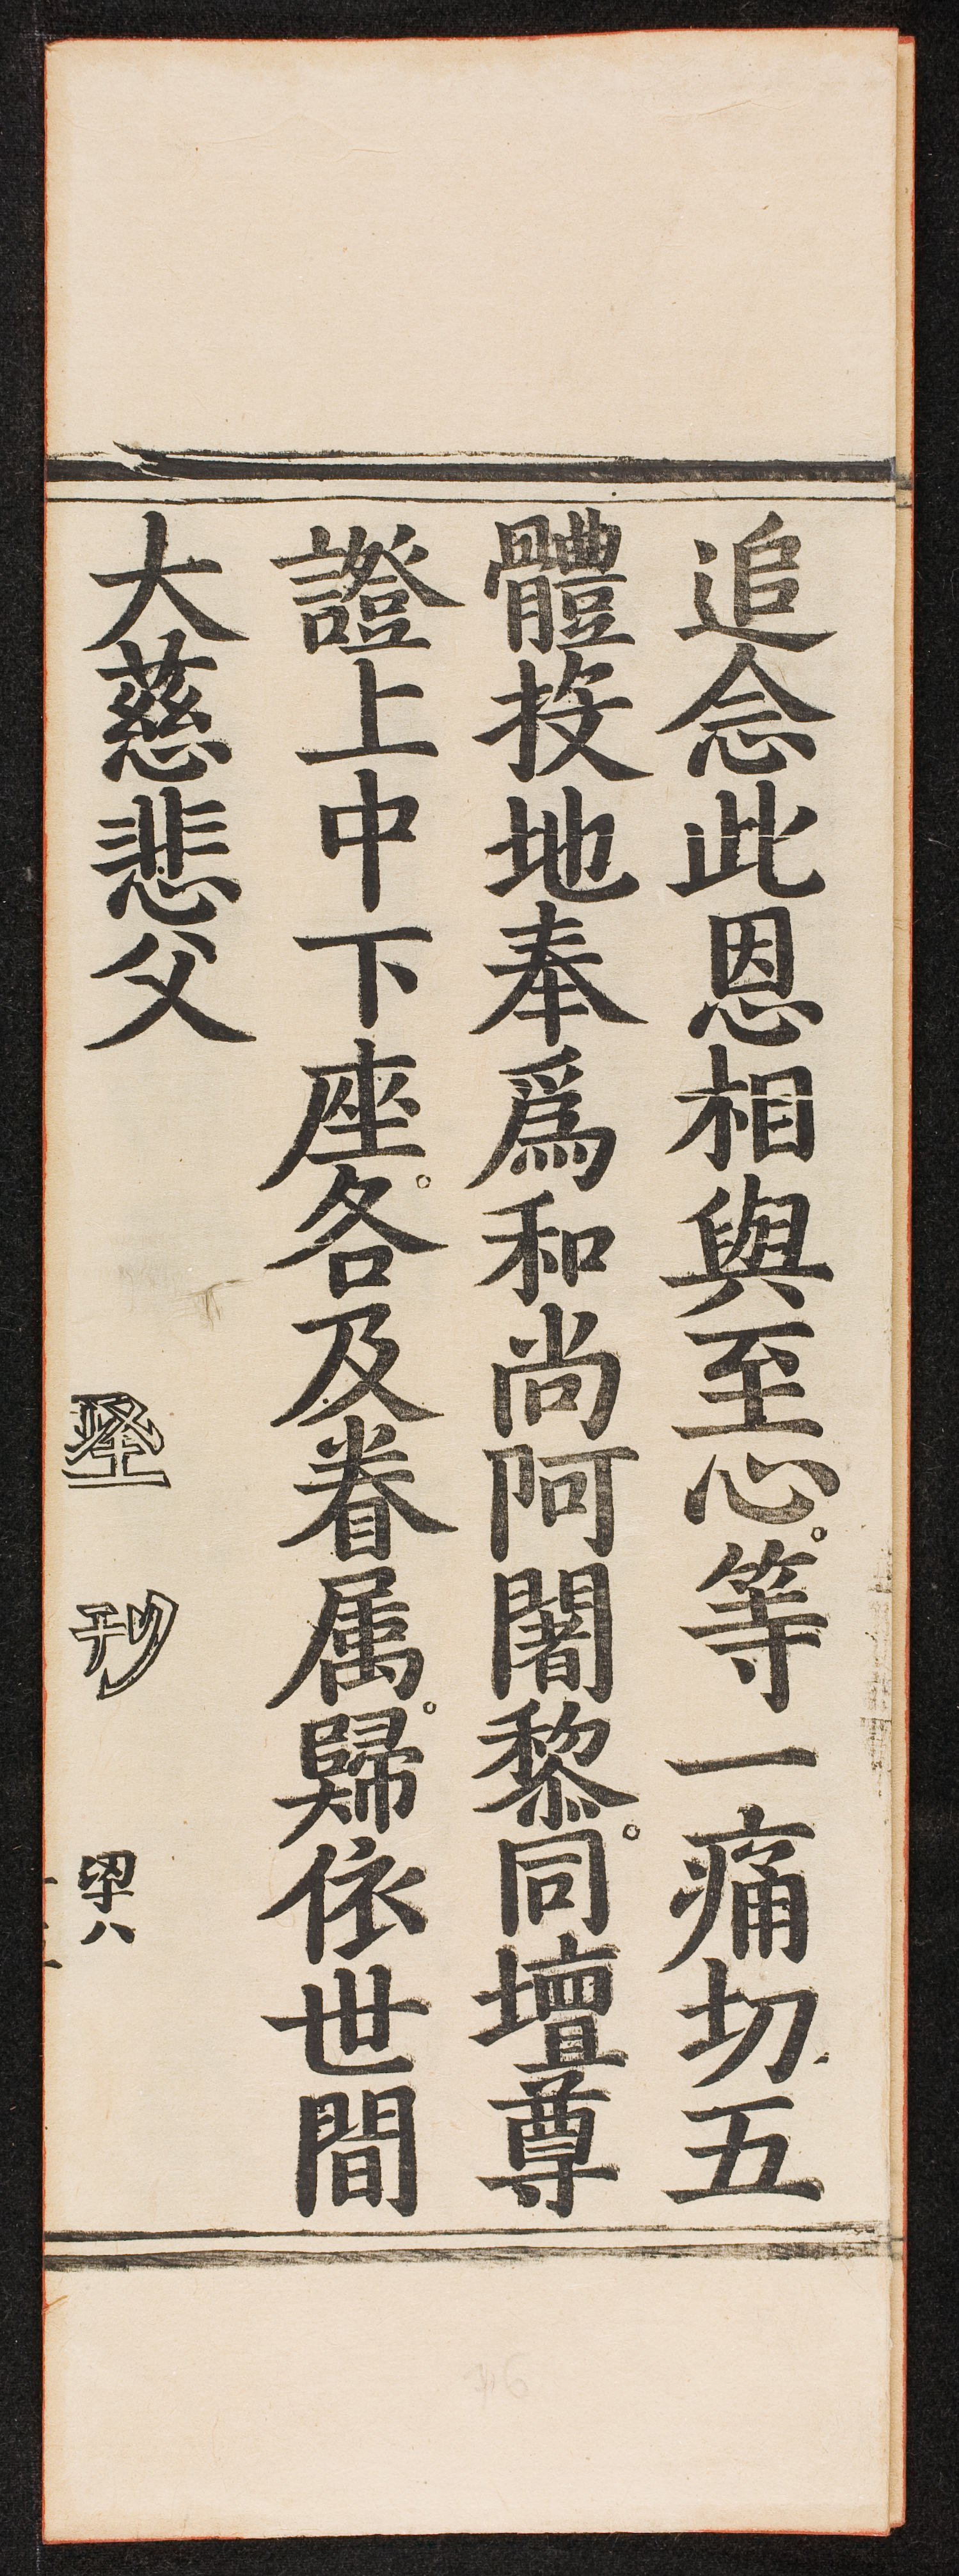 追念此恩相與至心。等一痛切五
體投地奉爲和尚阿闍黎。同壇尊
證上中下座。各及眷属。歸依世間
大慈悲父
刊